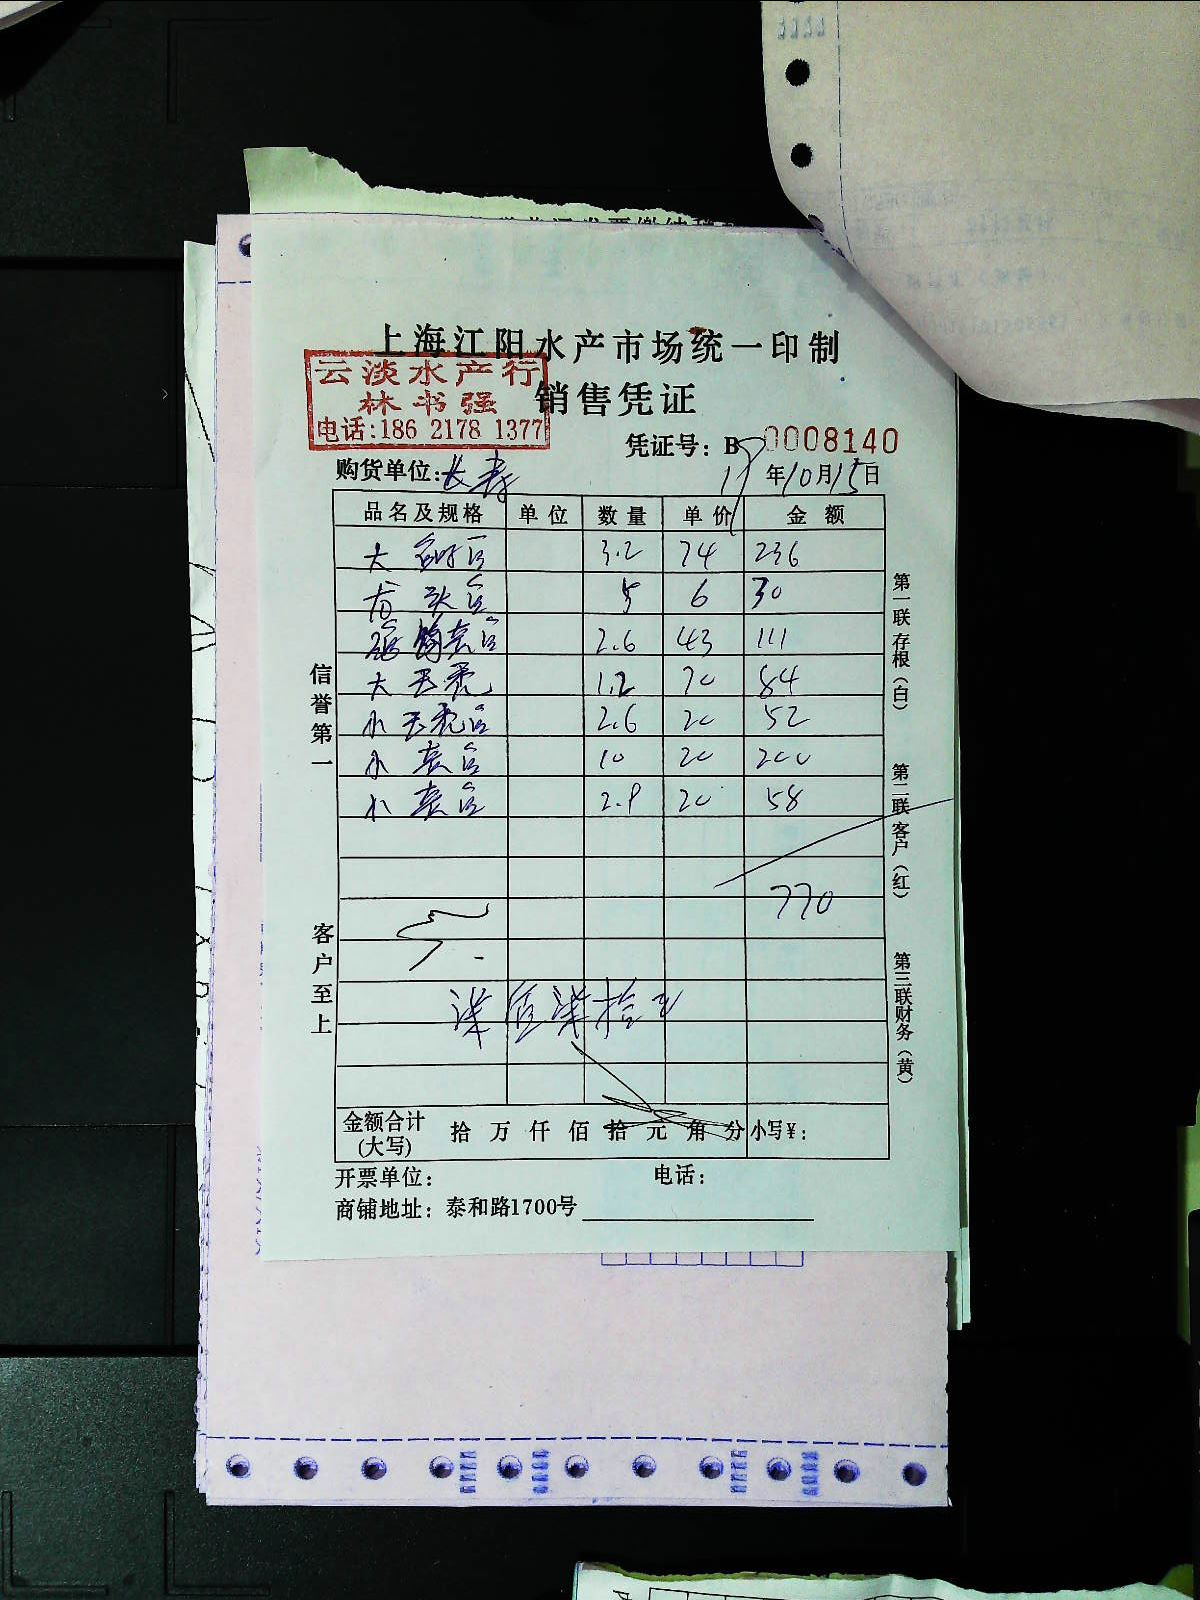 上海江阳水产市场统一印制
云淡水产行
林书强
电话:186 2178 1377
销售凭证
凭证号：B 0008140
购货单位:长寿
19年10月15日
品名及规格 单位 数量 单价 金额
大 3.2 74 236
龙头 5 6 30
2.6 43 111
大 1.2 70 84
小 2.6 20 52
小 10 20 200
小 2.9 20 58
770
柒佰柒拾元
金额合计(大写) 拾万仟佰拾元角分 小写¥:
开票单位： 电话：
商铺地址：泰和路1700号
信誉第一
客户至上
第一联存根（白）
第二联客户（红）
第三联财务（黄）